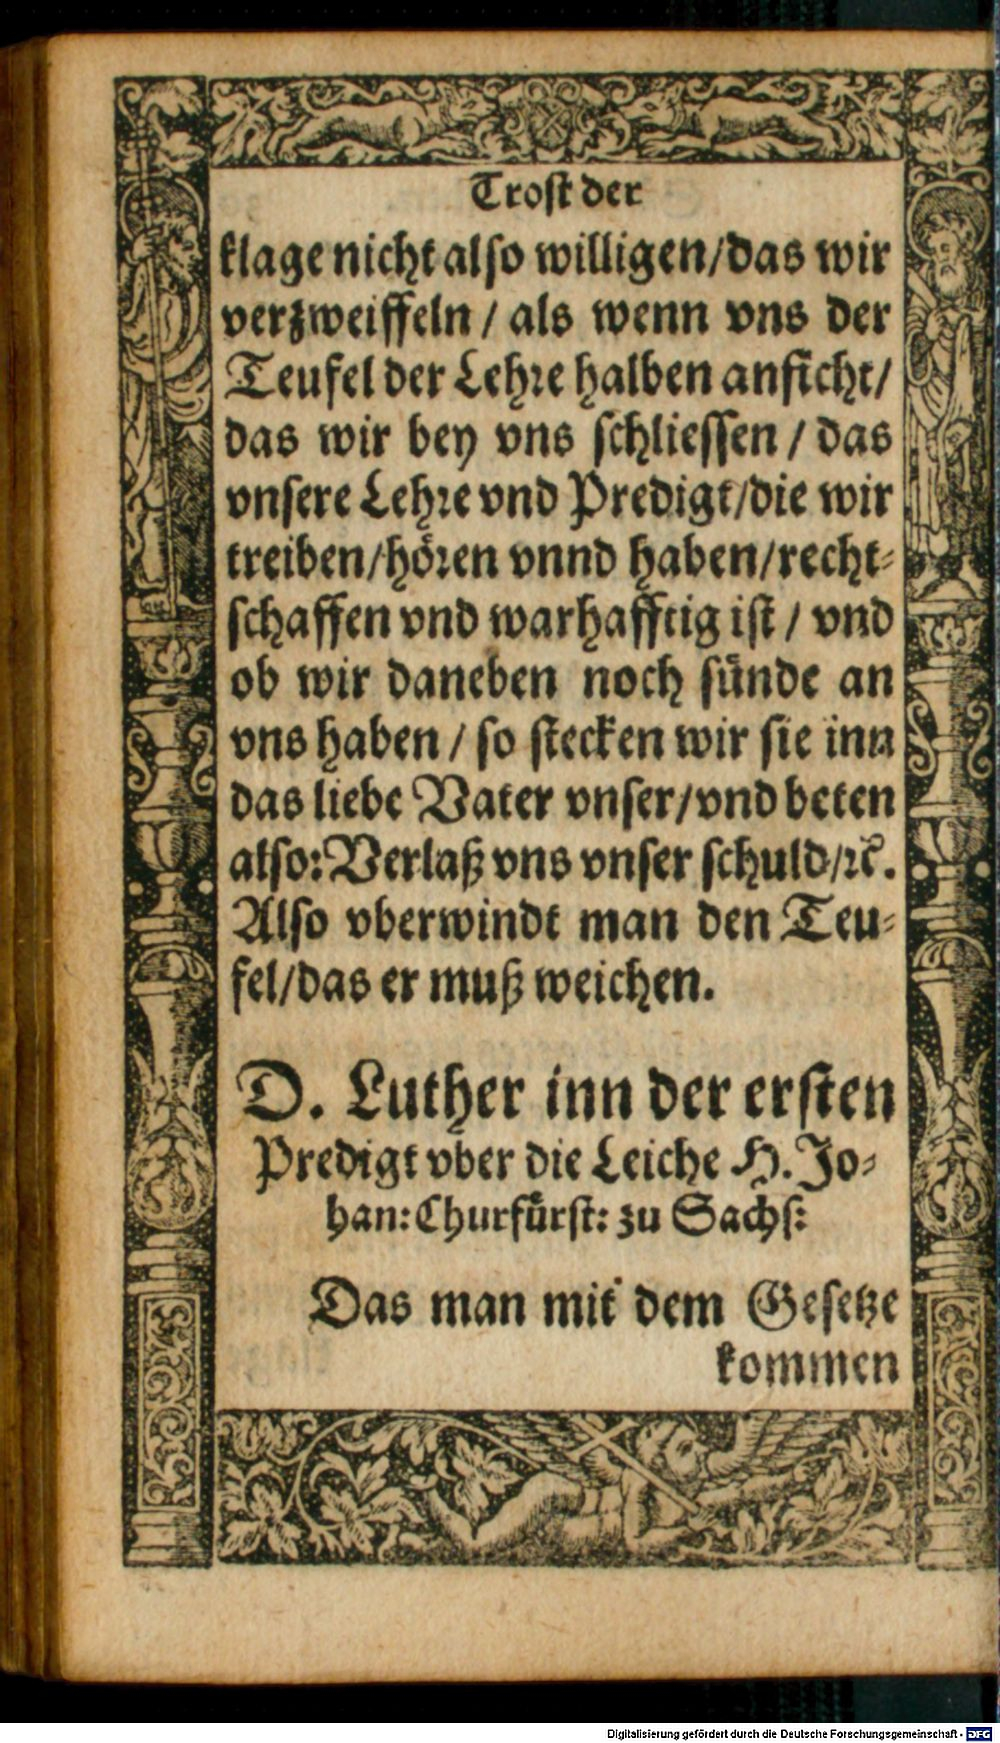 Trost der
klage nicht also willigen/das wir
verzweiffeln / als wenn vns der
Teufel der Lehre halben anficht/
das wir bey vns schliessen / das
vnsere Lehre vnd Predigt/die wir
treiben/hören vnnd haben/recht-
schaffen vnd warhafftig ist / vnd
ob wir daneben noch sünde an
vns haben / so stecken wir sie inn
das liebe Vater vnser/vnd beten
also: Verlaß vns vnser schuld/ꝛc.
Also vberwindt man den Teu-
fel/das er muß weichen.
D. Luther inn der ersten
Predigt vber die Leiche H. Jo-
han: Churfürst: zu Sachs:
Das man mit dem Gesetze
kommen
Digitalisierung gefördert durch die Deutsche Forschungsgemeinschaft - DFG